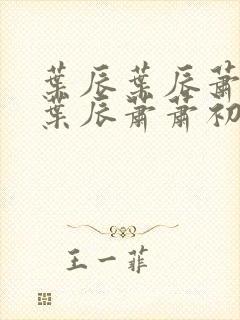 葉辰葉辰蕭
葉辰蕭蕭初
王一菲